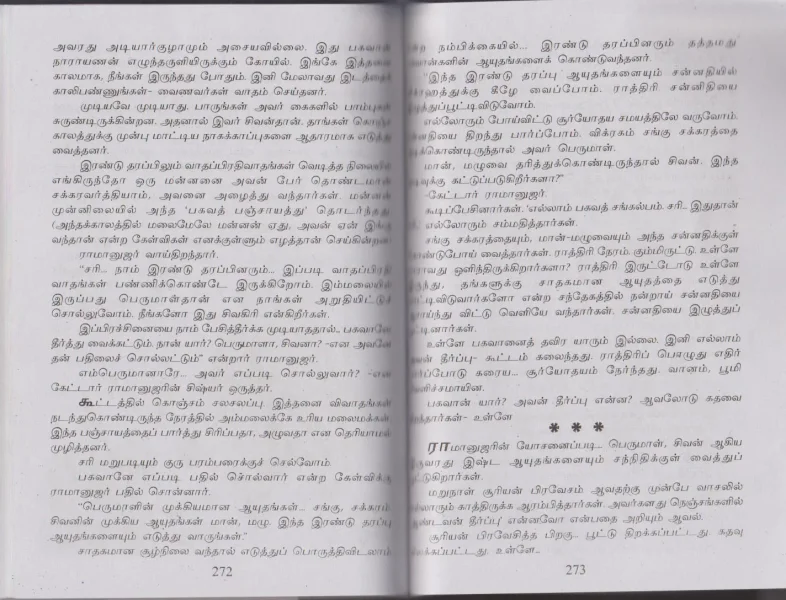 அவரது அடியார்குழாமும் அசையவில்லை. இது பகவான்
நாராயணன் எழுந்தருளியிருக்கும் கோயில். இங்கே இத்தனை
காலமாக, நீங்கள் இருந்தது போதும். இனி மேலாவது இடத்தைக்
காலிபண்ணுங்கள்- வைணவர்கள் வாதம் செய்தனர்.
முடியவே முடியாது. பாருங்கள் அவர் கைகளில் பாம்புகள்
சுருண்டிருக்கின்றன. அதனால் இவர் சிவன்தான். தாங்கள் கொஞ்ச
காலத்துக்கு முன்பு மாட்டிய நாகக்காப்புகளை ஆதாரமாக எடுத்து
வைத்தனர்.
இரண்டு தரப்பிலும் வாதப்பிரதிவாதங்கள் வெடித்த நிலையில்
எங்கிருந்தோ ஒரு மன்னனை அவன் பேர் தொண்டமான்
சக்கரவர்த்தியாம், அவனை அழைத்து வந்தார்கள். மன்னன்
முன்னிலையில் அந்த 'பகவத் பஞ்சாயத்து' தொடர்ந்தது
(அந்தக்காலத்தில் மலைமேலே மன்னன் ஏது, அவன் ஏன் இங்கு
வந்தான் என்ற கேள்விகள் எனக்குள்ளும் எழத்தான் செய்கின்றன
ராமானுஜர் வாய்திறந்தார்.
"சரி... நாம் இரண்டு தரப்பினரும்... இப்படி வாதப்பிரதி
வாதங்கள் பண்ணிக்கொண்டே இருக்கிறோம். இம்மலையில்
இருப்பது பெருமாள்தான் என நாங்கள் அறுதியிட்டுச்
சொல்லுவோம். நீங்களோ இது சிவகிரி என்கிறீர்கள்.
இப்பிரச்சினையை நாம் பேசித்தீர்க்க முடியாததால்... பகவானே
தீர்த்து வைக்கட்டும். நான் யார்? பெருமாளா, சிவனா? -என அவனே
தன் பதிலைச் சொல்லட்டும்" என்றார் ராமானுஜர்.
எம்பெருமானாரே... அவர் எப்படி சொல்லுவார்? -என
கேட்டார் ராமானுஜரின் சிஷ்யர் ஒருத்தர்.
கூட்டத்தில் கொஞ்சம் சலசலப்பு இத்தனை விவாதங்கள்
நடந்துகொண்டிருந்த நேரத்தில் அம்மலைக்கே உரிய மலைமக்கள்
இந்த பஞ்சாயத்தைப் பார்த்து சிரிப்பதா, அழுவதா என தெரியாமல்
முழித்தனர்.
சரி மறுபடியும் குரு பரம்பரைக்குச் செல்வோம்
பகவானே எப்படி பதில் சொல்வார் என்ற கேள்விக்கு
ராமானுஜர் பதில் சொன்னார்.
"பெருமாளின் முக்கியமான ஆயுதங்கள்... சங்கு, சக்கரம்
சிவனின் முக்கிய ஆயுதங்கள் மான், மழு. இந்த இரண்டு தரப்பு
ஆயுதங்களையும் எடுத்து வாருங்கள்."
சாதகமான சூழ்நிலை வந்தால் எடுத்துப் பொருத்திவிடலாம்
272
நம்பிக்கையில்... இரண்டு தரப்பினரும் தத்தமது
ஆயுதங்களைக் கொண்டுவந்தனர்.
"இந்த இரண்டு தரப்பு ஆயுதங்களையும் சன்னதியில்
கீழே வைப்போம். ராத்திரி சன்னிதியை
எல்லோரும் போய்விட்டு சூர்யோதய சமயத்திலே வருவோம்.
திறந்து பார்ப்போம். விக்ரகம் சங்கு சக்கரத்தை
அவர் பெருமாள்.
மான், மழுவை தரித்துக்கொண்டிருந்தால் சிவன். இந்த
கட்டுப்படுகிறீர்களா?"
-கேட்டார் ராமானுஜர்.
கூடிப்பேசினார்கள். 'எல்லாம் பகவத் சங்கல்பம். சரி... இதுதான்
எல்லோரும் சம்மதித்தார்கள்.
சங்கு சக்கரத்தையும், மான்-மழுவையும் அந்த சன்னதிக்குள்
வைத்தார்கள். ராத்திரி நேரம். கும்மிருட்டு. உள்ளே
ஒளிந்திருக்கிறார்களா? ராத்திரி இருட்டோடு உள்ளே
தங்களுக்கு சாதகமான ஆயுதத்தை எடுத்து
என்ற சந்தேகத்தில் நன்றாய் சன்னதியை
விட்டு வெளியே வந்தார்கள். சன்னதியை இழுத்துப்
உள்ளே பகவானைத் தவிர யாரும் இல்லை. இனி எல்லாம்
தீர்ப்பு- கூட்டம் கலைந்தது. ராத்திரிப் பொழுது எதிர்
கரைய... சூர்யோதயம் நேர்ந்தது. வானம், பூமி
பகவான் யார்? அவன் தீர்ப்பு என்ன? ஆவலோடு கதவை
உள்ளே
* * *
ராமானுஜரின் யோசனைப்படி... பெருமாள், சிவன் ஆகிய
இஷ்ட ஆயுதங்களையும் சந்நிதிக்குள் வைத்துப்
மறுநாள் சூரியன் பிரவேசம் ஆவதற்கு முன்பே வாசலில்
காத்திருக்க ஆரம்பித்தார்கள். அவர்களது நெஞ்சங்களில்
தீர்ப்பு என்னவோ என்பதை அறியும் ஆவல்.
சூரியன் பிரவேசித்த பிறகு... பூட்டு திறக்கப்பட்டது. கதவு
உள்ளே...
273